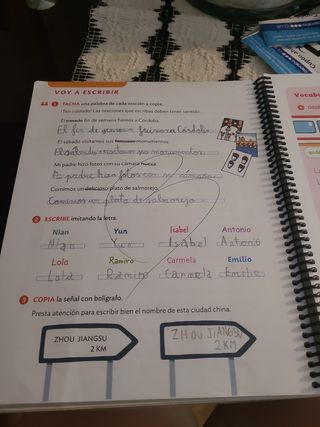 VOY A ESCRIBIR
1 TACHA una palabra de cada oración y copia.
¡Ten cuidado! Las oraciones que escribas deben tener sentido.
El pasado fin de semana fuimos a Córdoba.
El fin de semana fuimos a Córdoba
El sábado visitamos sus famosos monumentos.
El sábado visitamos sus monumentos
Mi padre hizo fotos con su cámara nueva.
padre hizo fotos con su cámara
Comimos un delicioso plato de salmorejo.
Comimos un plato de salmorejo
2 ESCRIBE imitando la letra.
Nian Yun Isabel Antonio
Nian Yun Isabel Antonio
Lola Ramiro Carmela Emilio
Lola Ramiro Carmela Emilio
3 COPIA la señal con bolígrafo.
Presta atención para escribir bien el nombre de esta ciudad china.
ZHOU JIANGSU
2 KM
ZHOU JIANGSU
2 KM
Vocabu